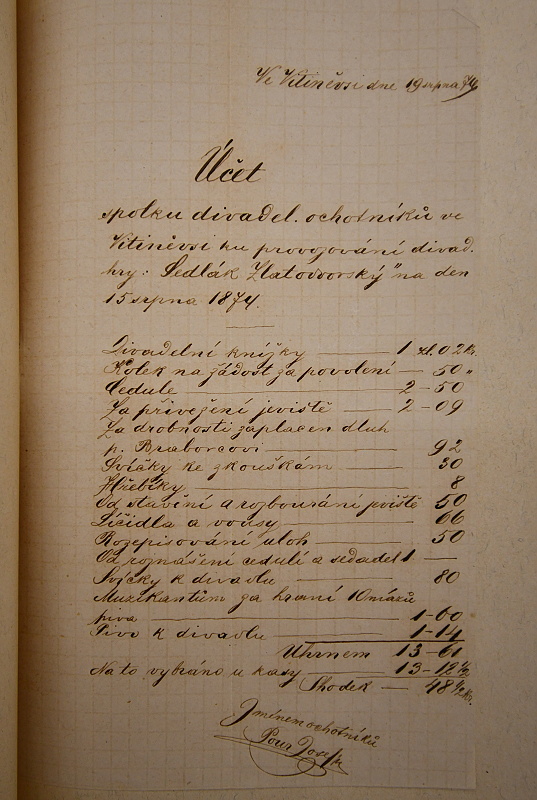 Ve Vitiněvsi dne 19 srpna 74
Účet
spolku divadel. ochotníků ve
Vitiněvsi ku provozování divad.
hry: Sedlák Zlatodvorský" na den
15 srpna 1874.
Divadelní knížky — 1 zl. 02 kr.
Kolek na žádost za povolení — 50 "
Cedule — 2-50
Za přivežení jeviště — 2-09
Za drobnosti zaplacen dluh
p. Braborcovi — 92
Svíčky ke zkouškám — 30
Hřebíky — 8
Od stavění a rozbourání jeviště 50
Líčidla a vousy — 66
Rozepisování uloh — 50
Od roznášení cedulí a sedadel 1 —
Svíčky k divadlu — 80
Muzikantům za hraní 10 mázů
piva — 1-60
Pivo k divadlu — 1-14
Úhrnem 13-61
Na to vybráno u kasy — 13-12 1/2
Shodek — 48 1/2 kr.
Jménem ochotníků
Pour Josef